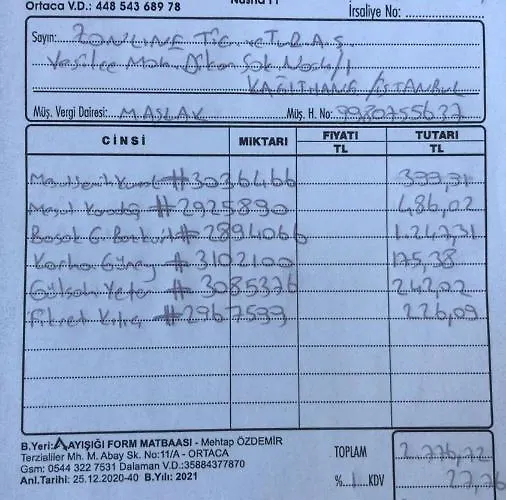 Ortaca V.D.: 448 543 689 78
İrsaliye No:
Sayın: ZONLINE TİC ve TUR A.Ş
Yeşilce Mah. Sok No:4/1
KAĞITHANE / İSTANBUL
Müş. Vergi Dairesi: MASLAK Müş. H. No: 9980755637
CİNSİ MİKTARI FİYATI TL TUTARI TL
#3036466 399,31
#2925890 486,02
Başak G Bozkurt #2894066 1.247,31
Güney #3102100 175,38
Gülşah Yeter #3085376 242,02
Fikret Kılıç #2967599 226,09
B.Yeri: AYIŞIĞI FORM MATBAASI - Mehtap ÖZDEMİR
Terzialiler Mh. M. Abay Sk. No:11/A - ORTACA
Gsm: 0544 322 7531 Dalaman V.D.:35884377870
Anl.Tarihi: 25.12.2020-40 B.Yılı: 2021
TOPLAM 2.776,12
%1 KDV 27,76